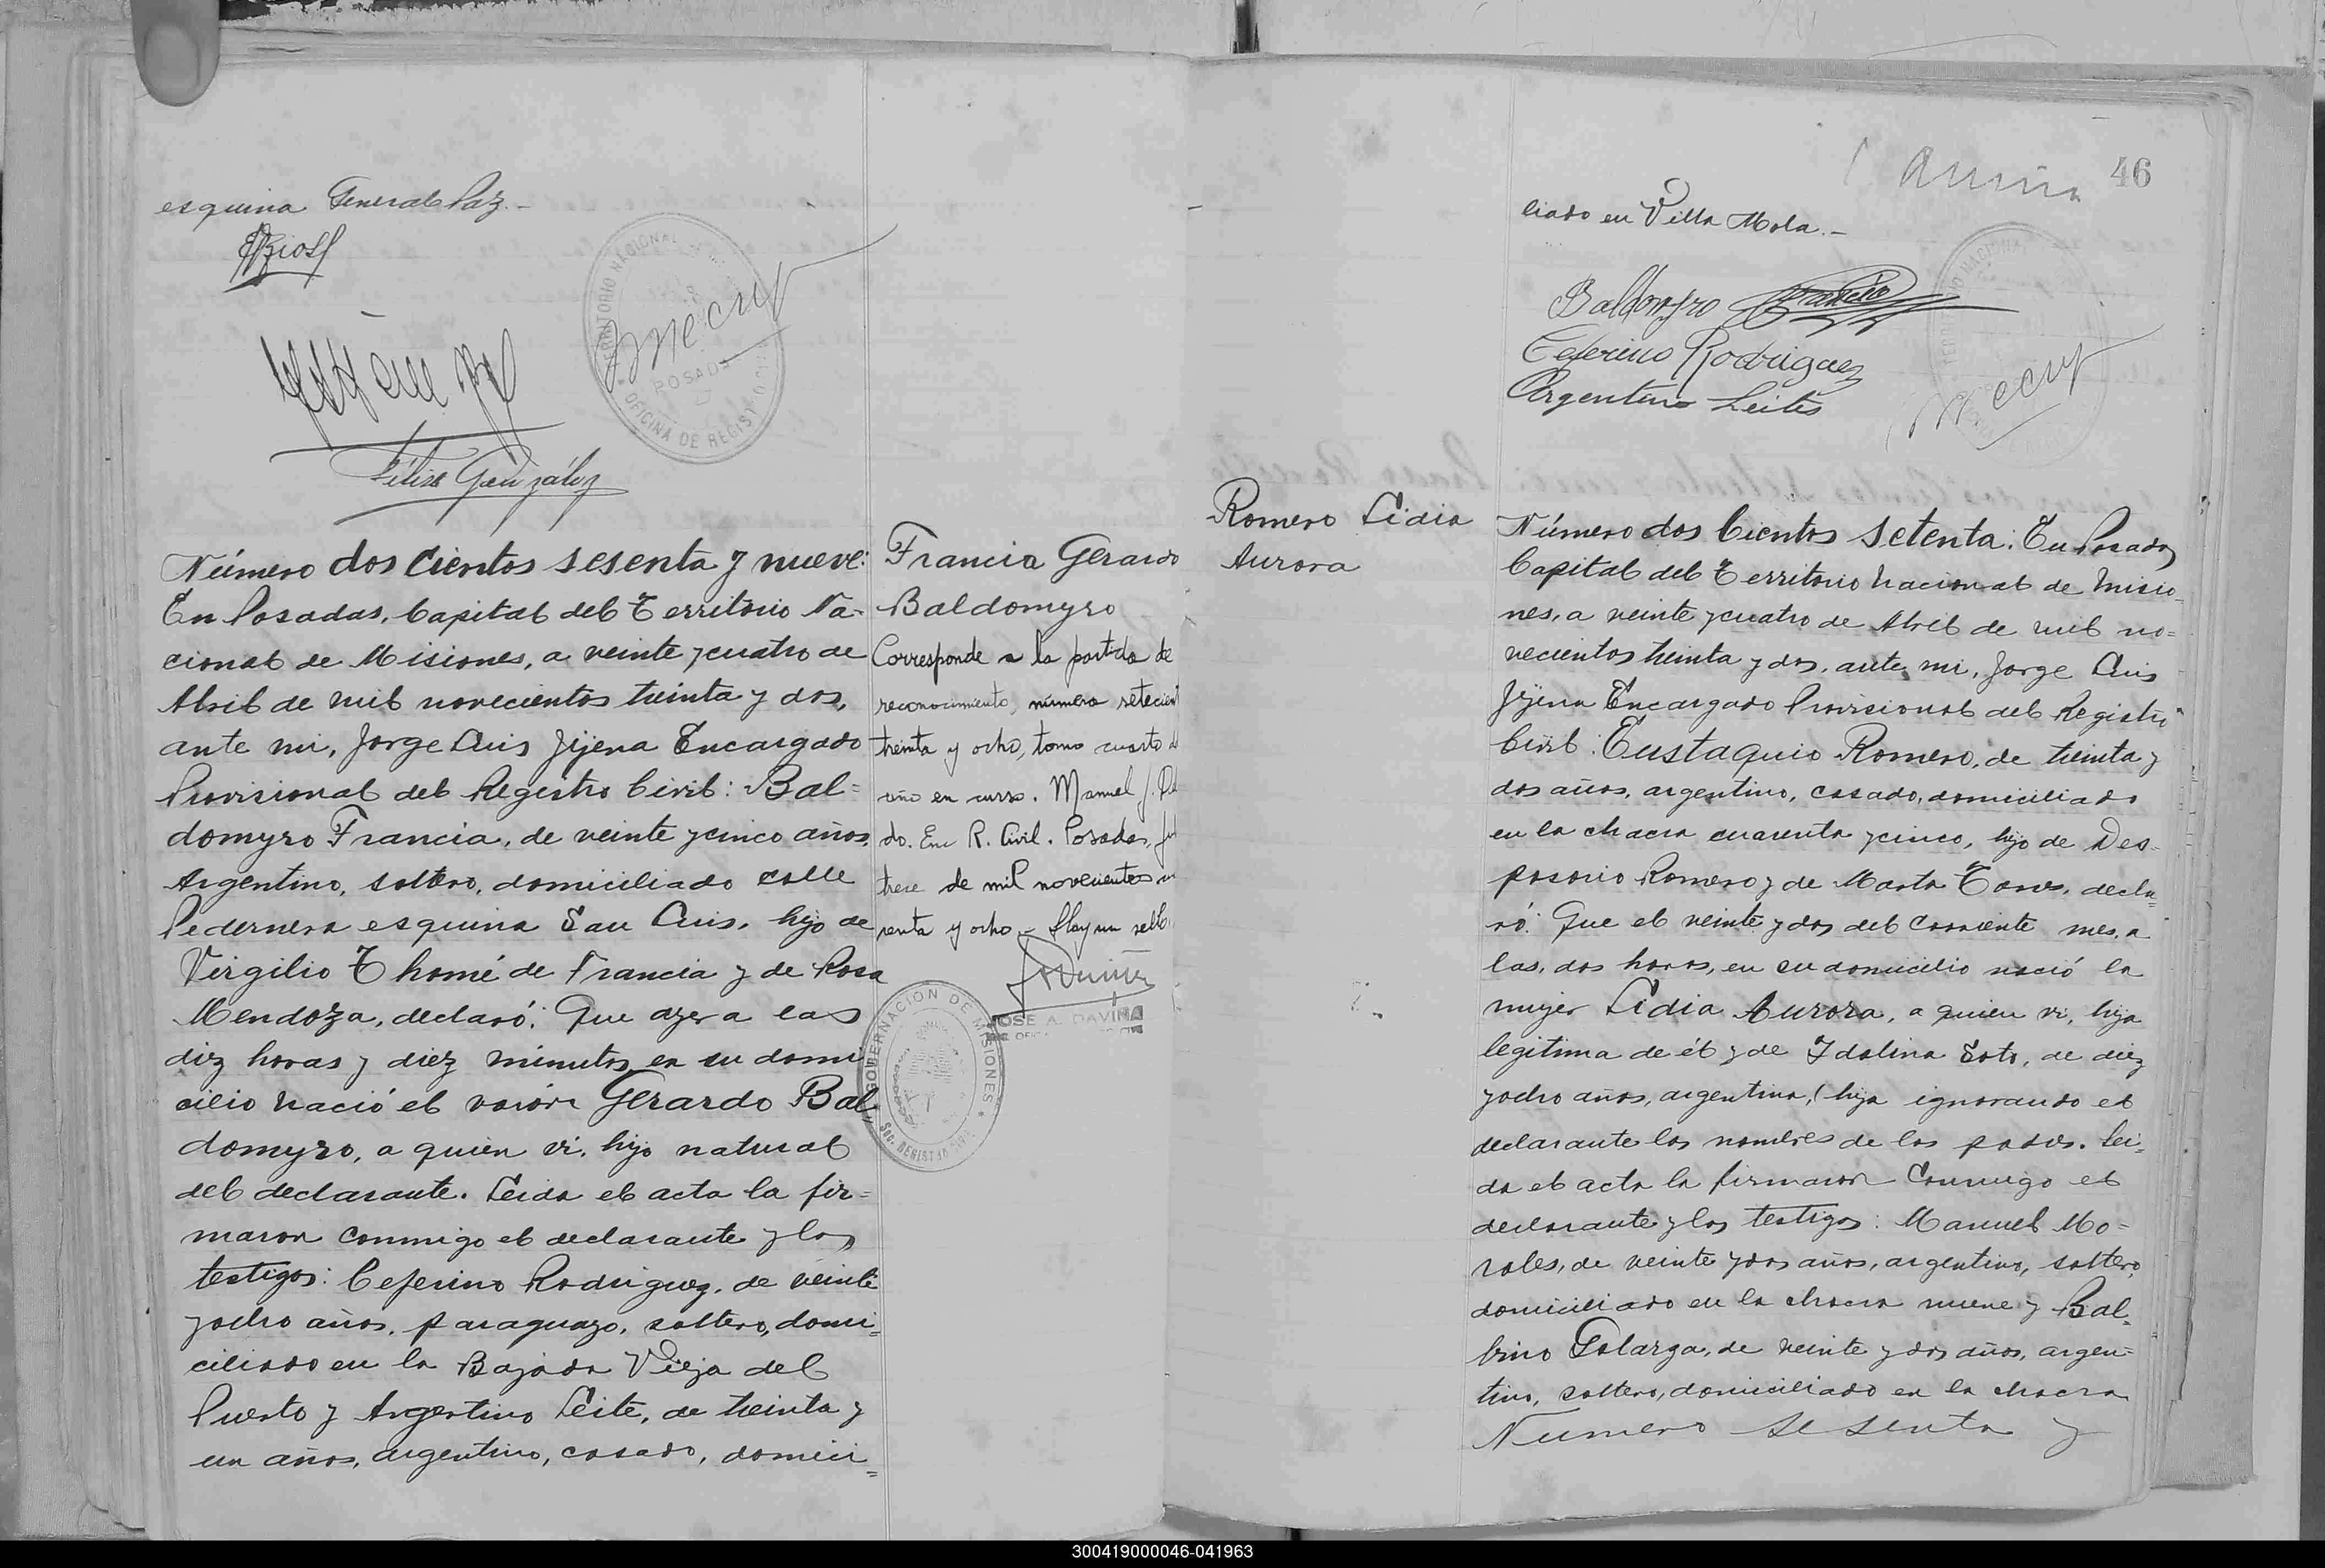 esquina General Paz.-
Félix González
TERRITORIO NACIONAL
POSADAS
OFICINA DE REGISTRO
Número dos Cientos sesenta y nueve:
En Posadas, Capital del Territorio Na=
cional de Misiones, a veinte y cuatro de
Abril de mil novecientos treinta y dos,
ante mi, Jorge Luis Jijena Encargado
Provisional del Registro Civil: Bal=
domyro Francia, de veinte y cinco años,
Argentino, soltero, domiciliado calle
Pedernera esquina San Luis, hijo de
Virgilio Thomé de Francia y de Rosa
Mendoza, declaró: Que ayer a las
diez horas y diez minutos, en su domi
cilio nació el varón Gerardo Bal
domyro, a quien vi, hijo natural
del declarante. Leida el acta la fir=
maron conmigo el declarante y los
testigos: Ceferino Rodriguez, de veinte
y ocho años, paraguayo, soltero, domi=
ciliado en la Bajada Vieja del
Puerto y Argentino Leite, de treinta y
un años, argentino, casado, domici=
Francia Gerardo
Baldomyro
Corresponde a la partida de
reconocimiento, número setecient
treinta y ocho, tomo cuarto d
año en curso. Manuel J.
do. Enc R. Civil. Posadas, ju
trece de mil novecientos
renta y ocho - Hay un sello
JOSE A. DAVIÑA
GOBERNACION DE MISIONES
46
liado en Villa Mola.-
Baldomyro Francia
Ceferino Rodriguez
Argentino Leites
Romero Lidia
Aurora
Número dos Cientos Setenta: En Posadas
Capital del Territorio Nacional de Misio
nes, a veinte y cuatro de Abril de mil no=
vecientos treinta y dos, ante mi, Jorge Luis
Jijena Encargado Provisional del Registro
Civil: Eustaquio Romero, de treinta y
dos años, argentino, casado, domiciliado
en la chacra cuarenta y cinco, hijo de Des-
posorio Romero y de Marta Torres, decla=
ró: Que el veinte y dos del Corriente mes, a
las, dos horas, en su domicilio nació la
mujer Lidia Aurora, a quien vi, hija
legitima de él y de Idalina Soto, de diez
y ocho años, argentina, (hija ignorando el
declarante los nombres de los padres. Lei=
da el acta la firmaron Conmigo el
declarante y los testigos: Manuel Mo=
rales, de veinte y dos años, argentino, soltero,
domiciliado en la chacra nueve y Bal=
bino Galarza, de veinte y dos años, argen=
tino, soltero, domiciliado en la chacra
Numero sesenta y
300419000046-041963